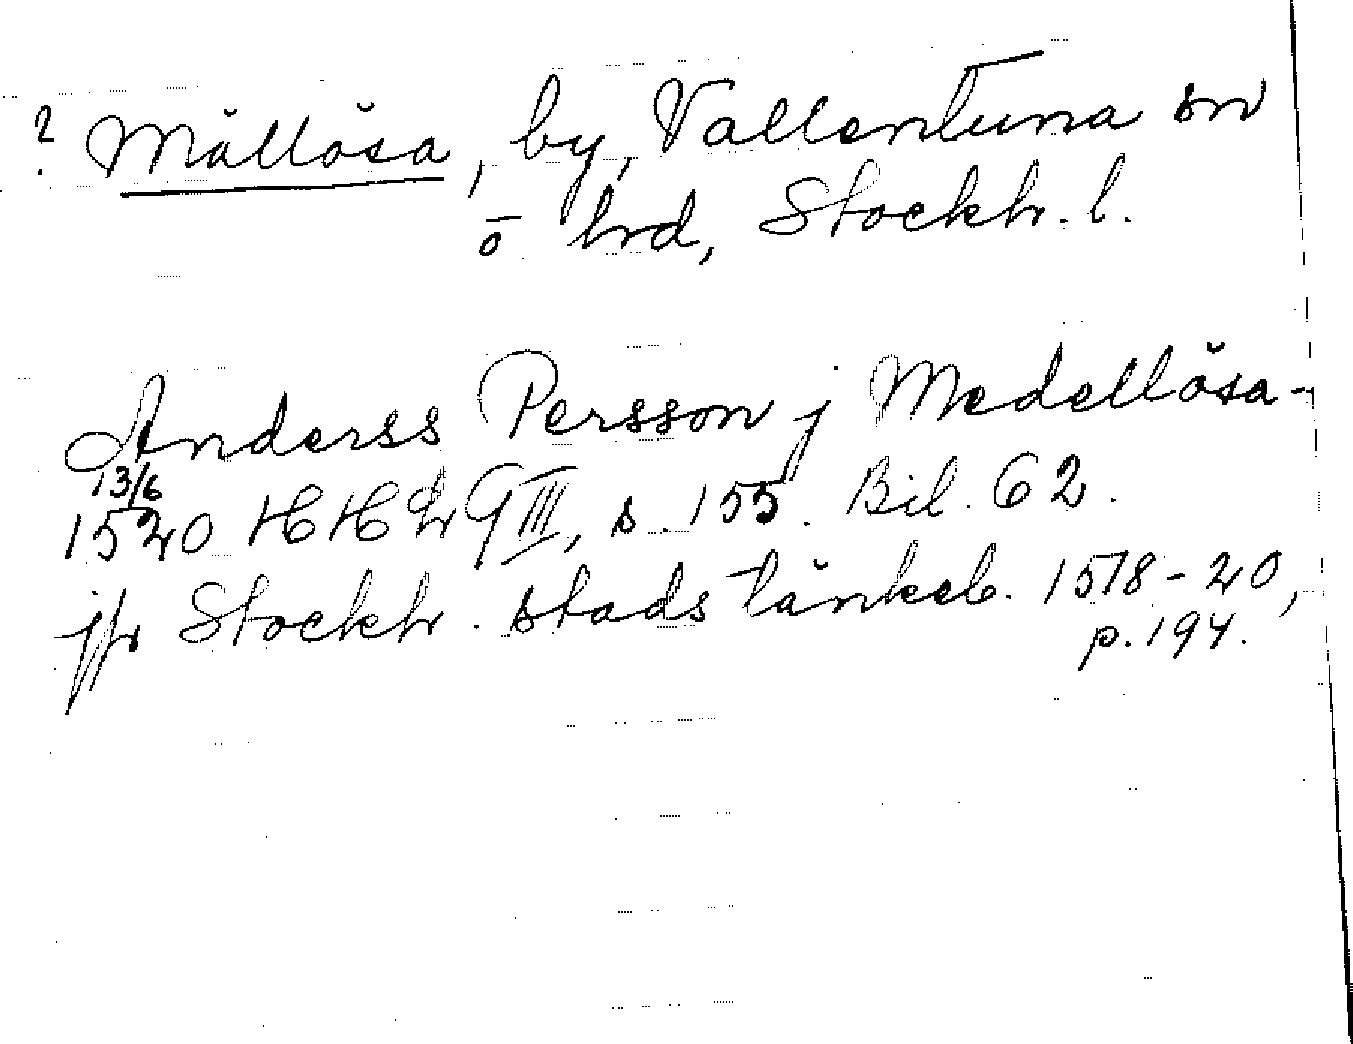 ? Mällösa, by, Vallentuna sn
o hrd, Stockh. l.
Anderss Persson j Medellösa -
13/6
1520 HHL 9 III, s. 155. Bil. 62.
jfr Stockh. stads tänkeb. 1518-20,
p. 194.